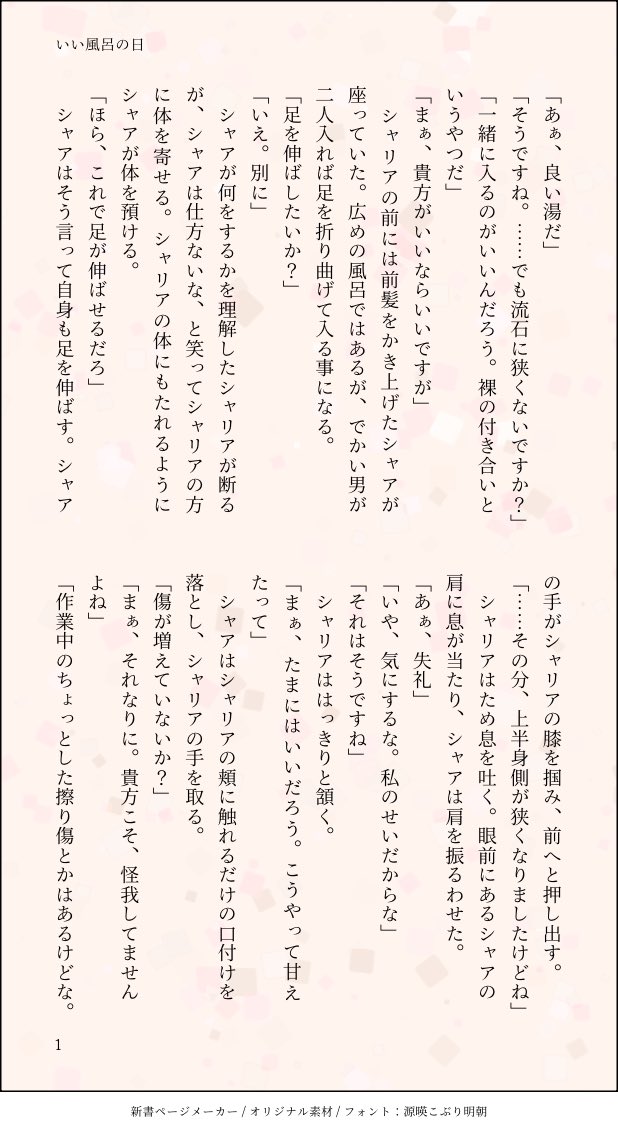 いい風呂の日
「あぁ、良い湯だ」
「そうですね。……でも流石に狭くないですか？」
「一緒に入るのがいいんだろう。裸の付き合いと
いうやつだ」
「まぁ、貴方がいいならいいですが」
　シャリアの前には前髪をかき上げたシャアが
座っていた。広めの風呂ではあるが、でかい男が
二人入れば足を折り曲げて入る事になる。
「足を伸ばしたいか？」
「いえ。別に」
　シャアが何をするかを理解したシャリアが断る
が、シャアは仕方ないな、と笑ってシャリアの方
に体を寄せる。シャリアの体にもたれるように
シャアが体を預ける。
「ほら、これで足が伸ばせるだろ」
　シャアはそう言って自身も足を伸ばす。シャア
の手がシャリアの膝を掴み、前へと押し出す。
「……その分、上半身側が狭くなりましたけどね」
　シャリアはため息を吐く。眼前にあるシャアの
肩に息が当たり、シャアは肩を振るわせた。
「あぁ、失礼」
「いや、気にするな。私のせいだからな」
「それはそうですね」
　シャリアははっきりと頷く。
「まぁ、たまにはいいだろう。こうやって甘え
たって」
　シャアはシャリアの頬に触れるだけの口付けを
落とし、シャリアの手を取る。
「傷が増えていないか？」
「まぁ、それなりに。貴方こそ、怪我してません
よね」
「作業中のちょっとした擦り傷とかはあるけどな。
1
新書ページメーカー / オリジナル素材 / フォント：源暎こぶり明朝